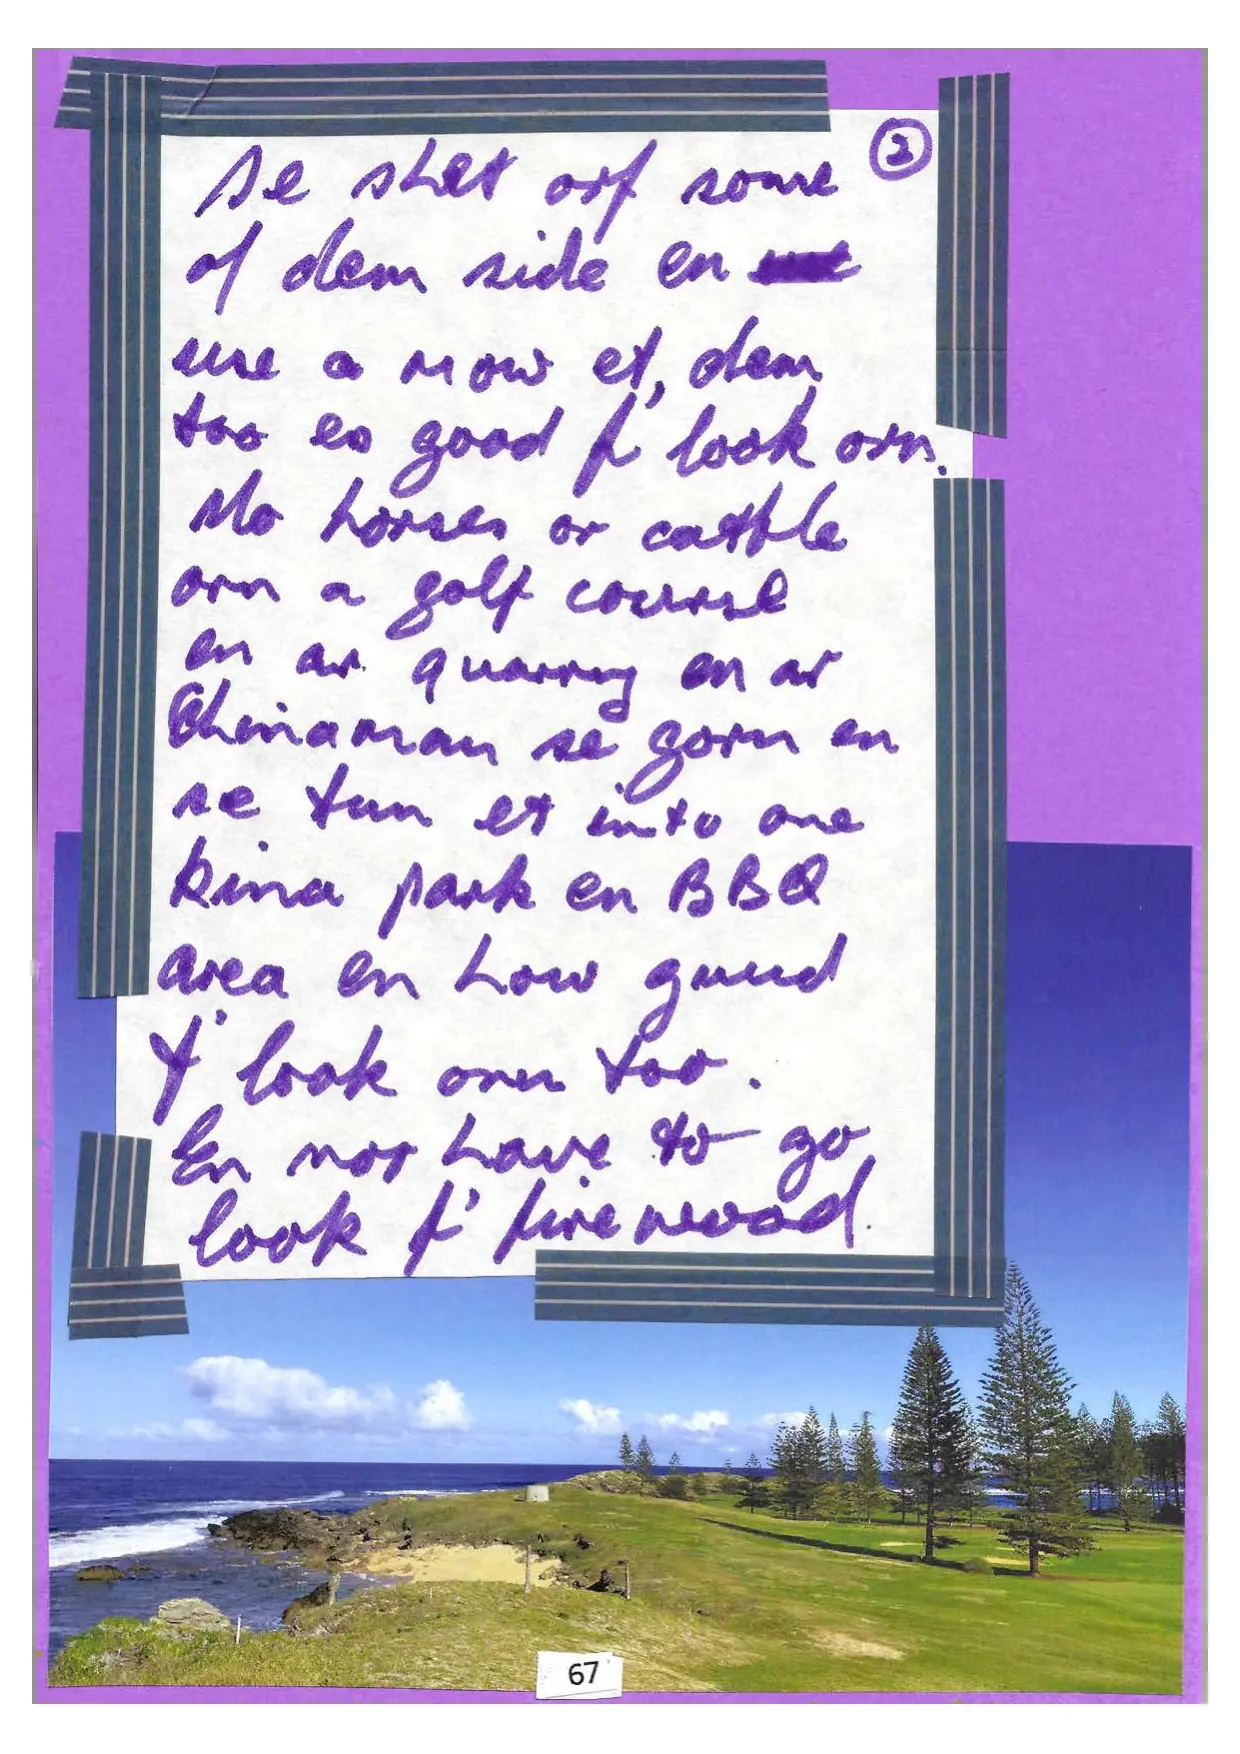 2
Se shet orf some
of dem side en
use a mow et, dem
too es good f' look orn.
No horses or cattle
orn a golf course
en ar quarry en ar
Chinaman se gorn en
se tun et into one
kina park en BBQ
area en how guud
f' look orn too.
En nor have to go
look f' firewood.
67